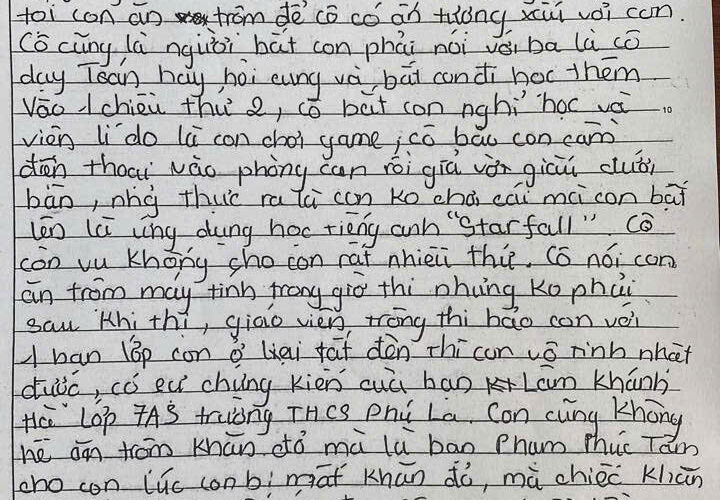 tội con ăn trộm để cô có ấn tượng xấu với con.
Cô cũng là người bắt con phải nói với ba là cô
dạy Toán hay hỏi cung và bắt con đi học thêm
Vào 1 chiều thứ 2, cô bắt con nghỉ học và 10
viện lí do là con chơi game, cô bảo con cầm
điện thoại vào phòng con rồi giả vờ giấu dưới
bàn, nhg thực ra là con ko chơi cái mà con bật
lên là ứng dụng học tiếng anh "Starfall". Cô
còn vu khống cho con rất nhiều thứ. Cô nói con
ăn trộm máy tính trong giờ thi nhưng ko phải
sau khi thi, giáo viên trông thi bảo con với
1 bạn lớp con ở lại tắt đèn thì con vô tình nhặt
được, có sự chứng kiến của bạn Lâm Khánh
Hà lớp 7A5 trường THCS Phú La. Con cũng không
hề ăn trộm khăn đỏ mà là bạn Phạm Phúc Tâm
cho con lúc con bị mất khăn đỏ, mà chiếc khăn